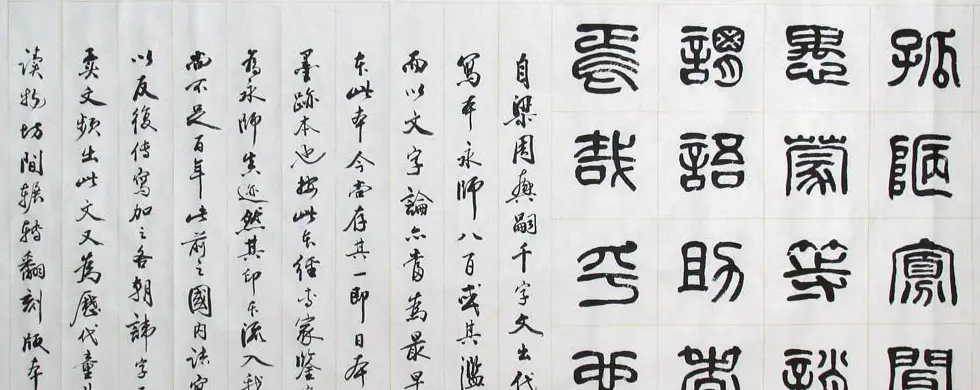 孤陋寡聞
愚蒙等誚
謂語助者
焉哉乎也
自梁周興嗣千字文出代
寫本永師八百或其濫
而以文字論亦當為最早
本此本今尚存其一即日本
墨跡本也按此本經专家鑒
為永師真迹然其印本流入我
尚不足百年此前之國内諸家
以反復傳寫加之各朝諱字
異文頻出此文又為歷代童
读物坊間輾轉翻刻版本